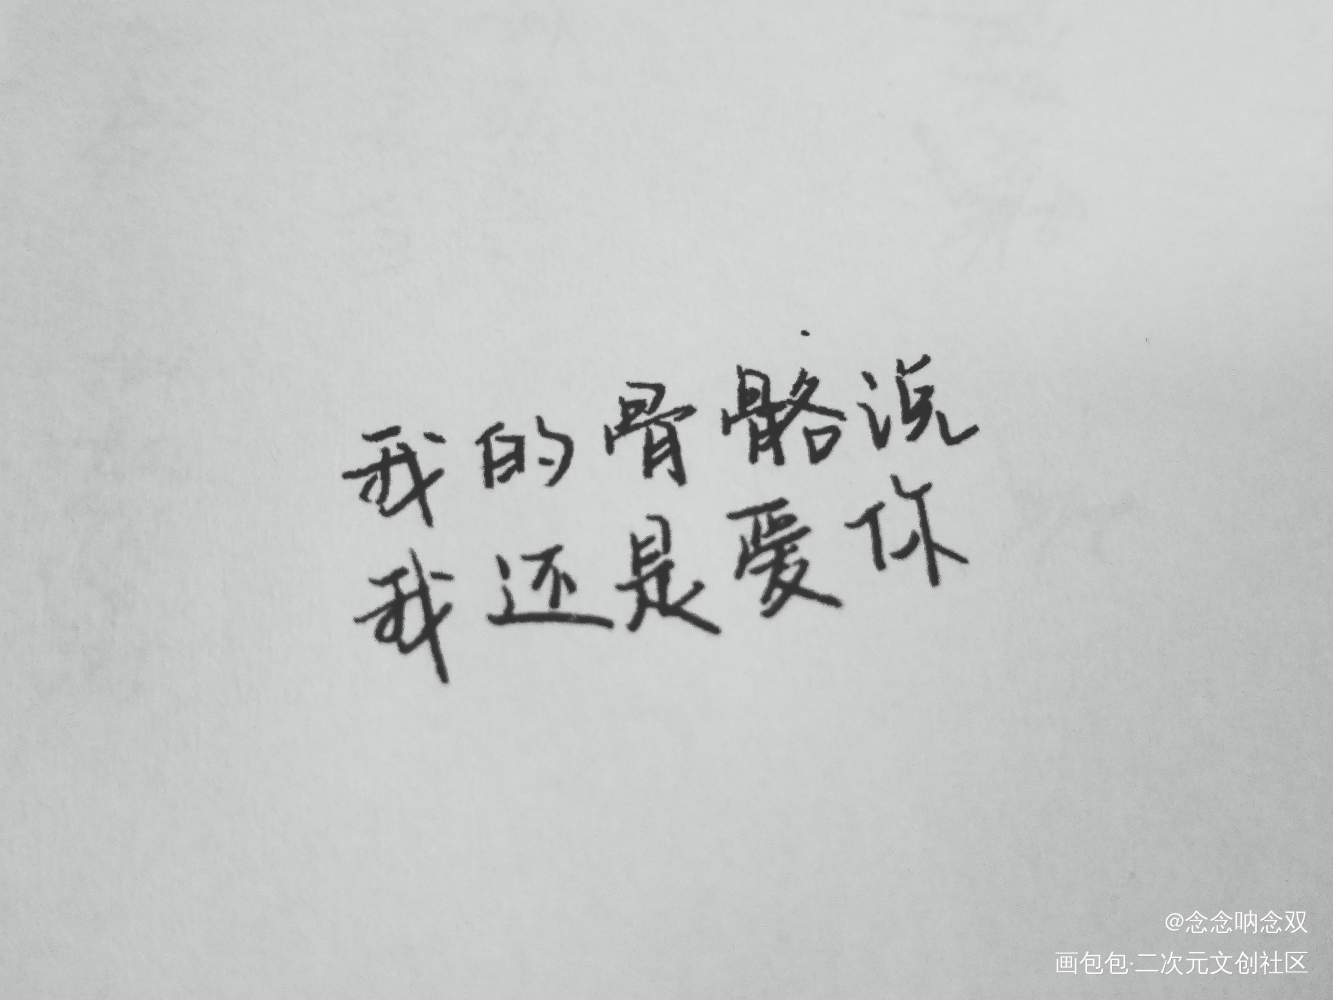 我的骨骼说
我还是爱你
@念念呐念双
画包包·二次元文创社区